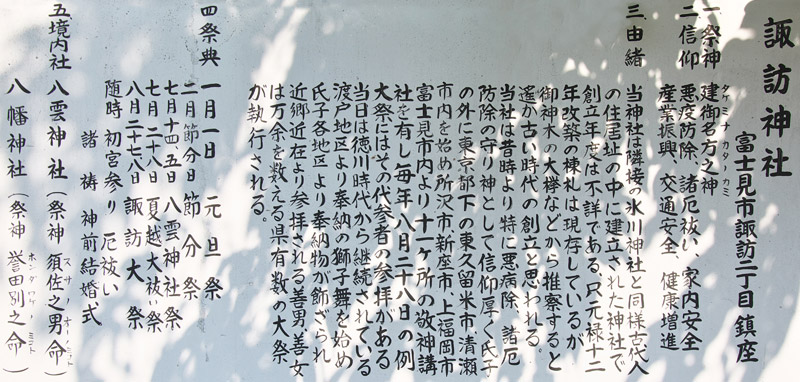 諏訪神社
富士見市諏訪二丁目鎮座
一祭神 建御名方之神
タケミナカタノカミ
二信仰 悪疫防除、諸厄祓い、家内安全
産業振興、交通安全、健康増進
三由緒
当神社は隣接の氷川神社と同様古代人
の住居址の中に建立された神社で
創立年度は不詳である。只元禄十二
年改築の棟札は現存しているが
御神木の大欅などから推察すると
遥か古い時代の創立と思われる。
当社は昔時より特に悪病除、諸厄
防除の守り神として信仰厚く氏子
の外に東京都下の東久留米市、清瀬
市内を始め所沢市、新座市、上福岡市
富士見市内より十一ヶ所の敬神講
社を有し毎年八月二十八日の例
大祭にはその代参者の参拝がある
当日は徳川時代から継続されている
渡戸地区より奉納の獅子舞を始め
氏子各地区より奉納物が飾ざられ
近郷近在より参拝される善男、善女
は万余を数える県有数の大祭
が執行される。
四祭典 一月一日 元旦祭
二月節分日 節分祭
七月十四、五日 八雲神社祭
七月二十八日 夏越大祓い祭
八月二十七、八日 諏訪大祭
随時 初宮参り 厄祓い
諸祷 神前結婚式
五境内社 八雲神社(祭神 須佐之男命)
スサノオノミコト
八幡神社(祭神 誉田別之命)
ホンダワケノミコト